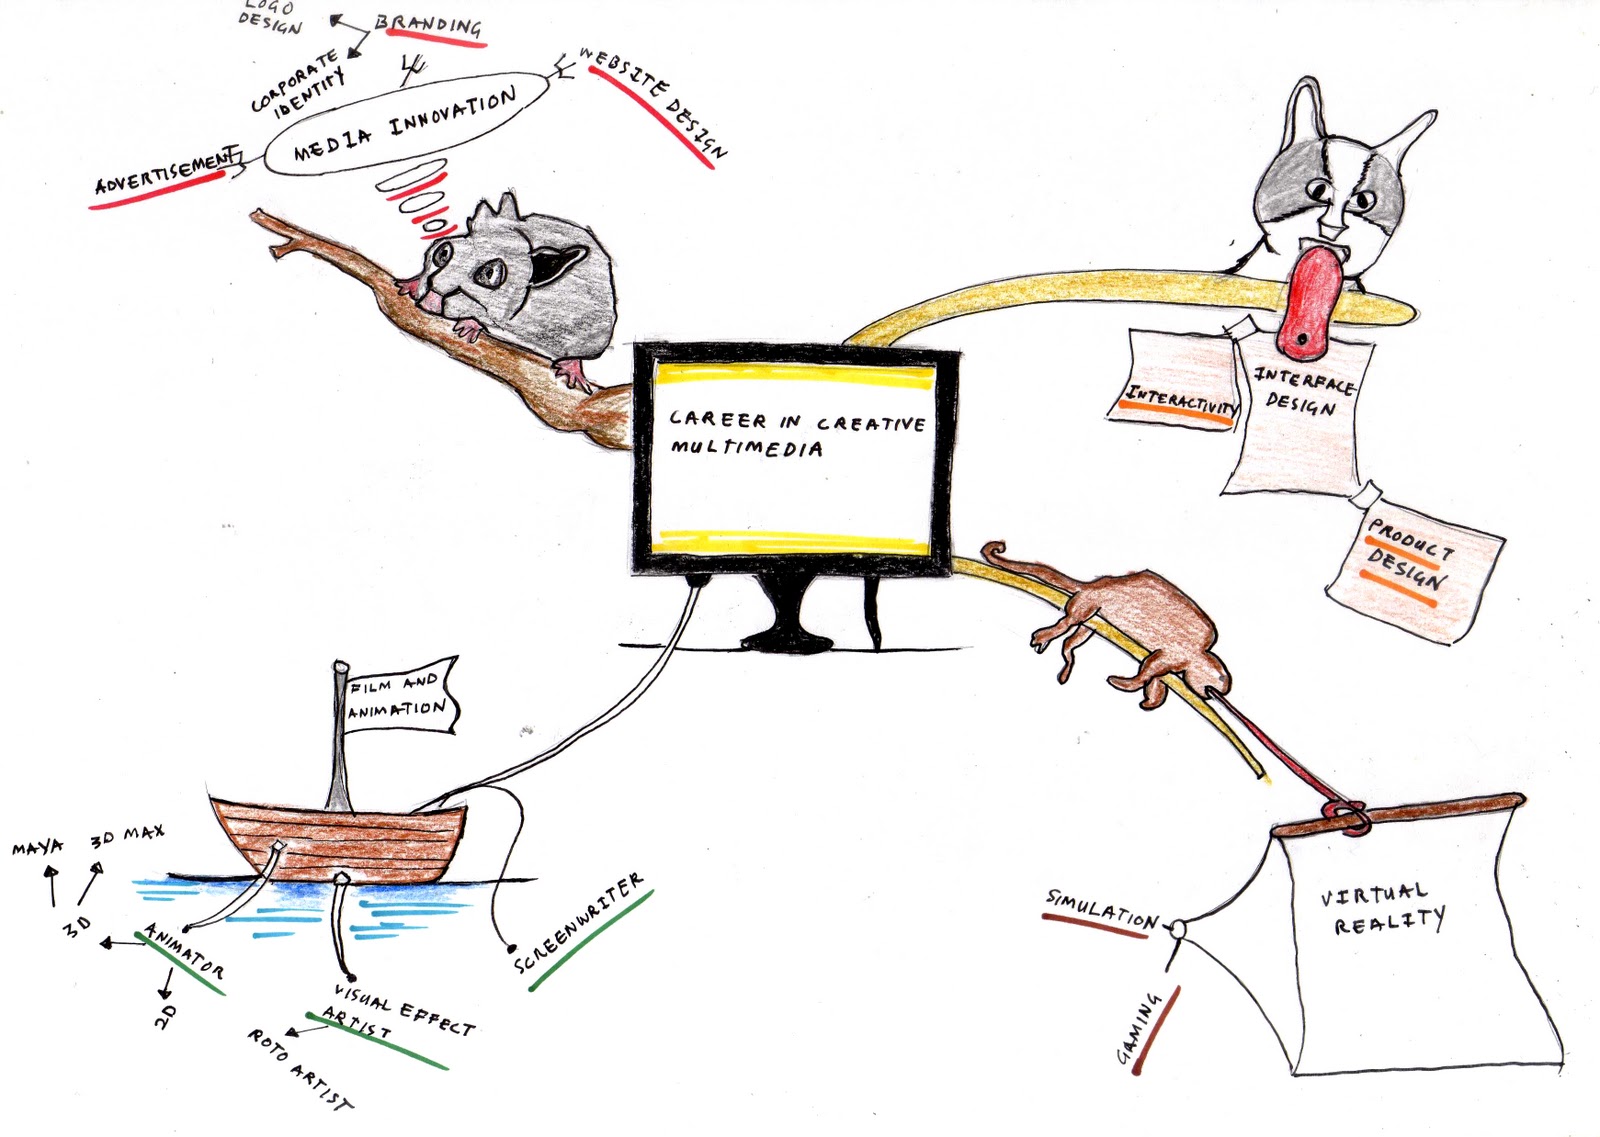 LOGO
DESIGN
BRANDING
CORPORATE
IDENTITY
WEBSITE DESIGN
MEDIA INNOVATION
ADVERTISEMENT
INTERACTIVITY
INTERFACE
DESIGN
PRODUCT
DESIGN
CAREER IN CREATIVE
MULTIMEDIA
FILM AND
ANIMATION
MAYA
3D MAX
3D
ANIMATOR
2D
VISUAL EFFECT
ARTIST
ROTO ARTIST
SCREENWRITER
SIMULATION
GAMING
VIRTUAL
REALITY